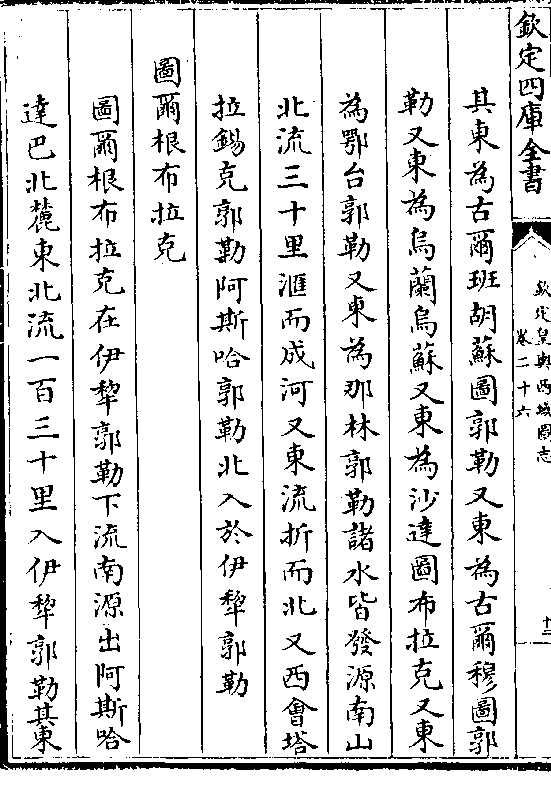 欽定四庫全書
欽定皇輿西域圖志
卷二十六
十二
其東為古爾班胡蘇圖郭勒又東為古爾穆圖郭
勒又東為烏蘭烏蘇又東為沙達圖布拉克又東
為鄂台郭勒又東為那林郭勒諸水皆發源南山
北流三十里滙而成河又東流折而北又西會塔
拉錫克郭勒阿斯哈郭勒北入於伊犂郭勒
圖爾根布拉克
圖爾根布拉克在伊犂郭勒下流南源出阿斯哈
達巴北麓東北流一百三十里入伊犂郭勒其東